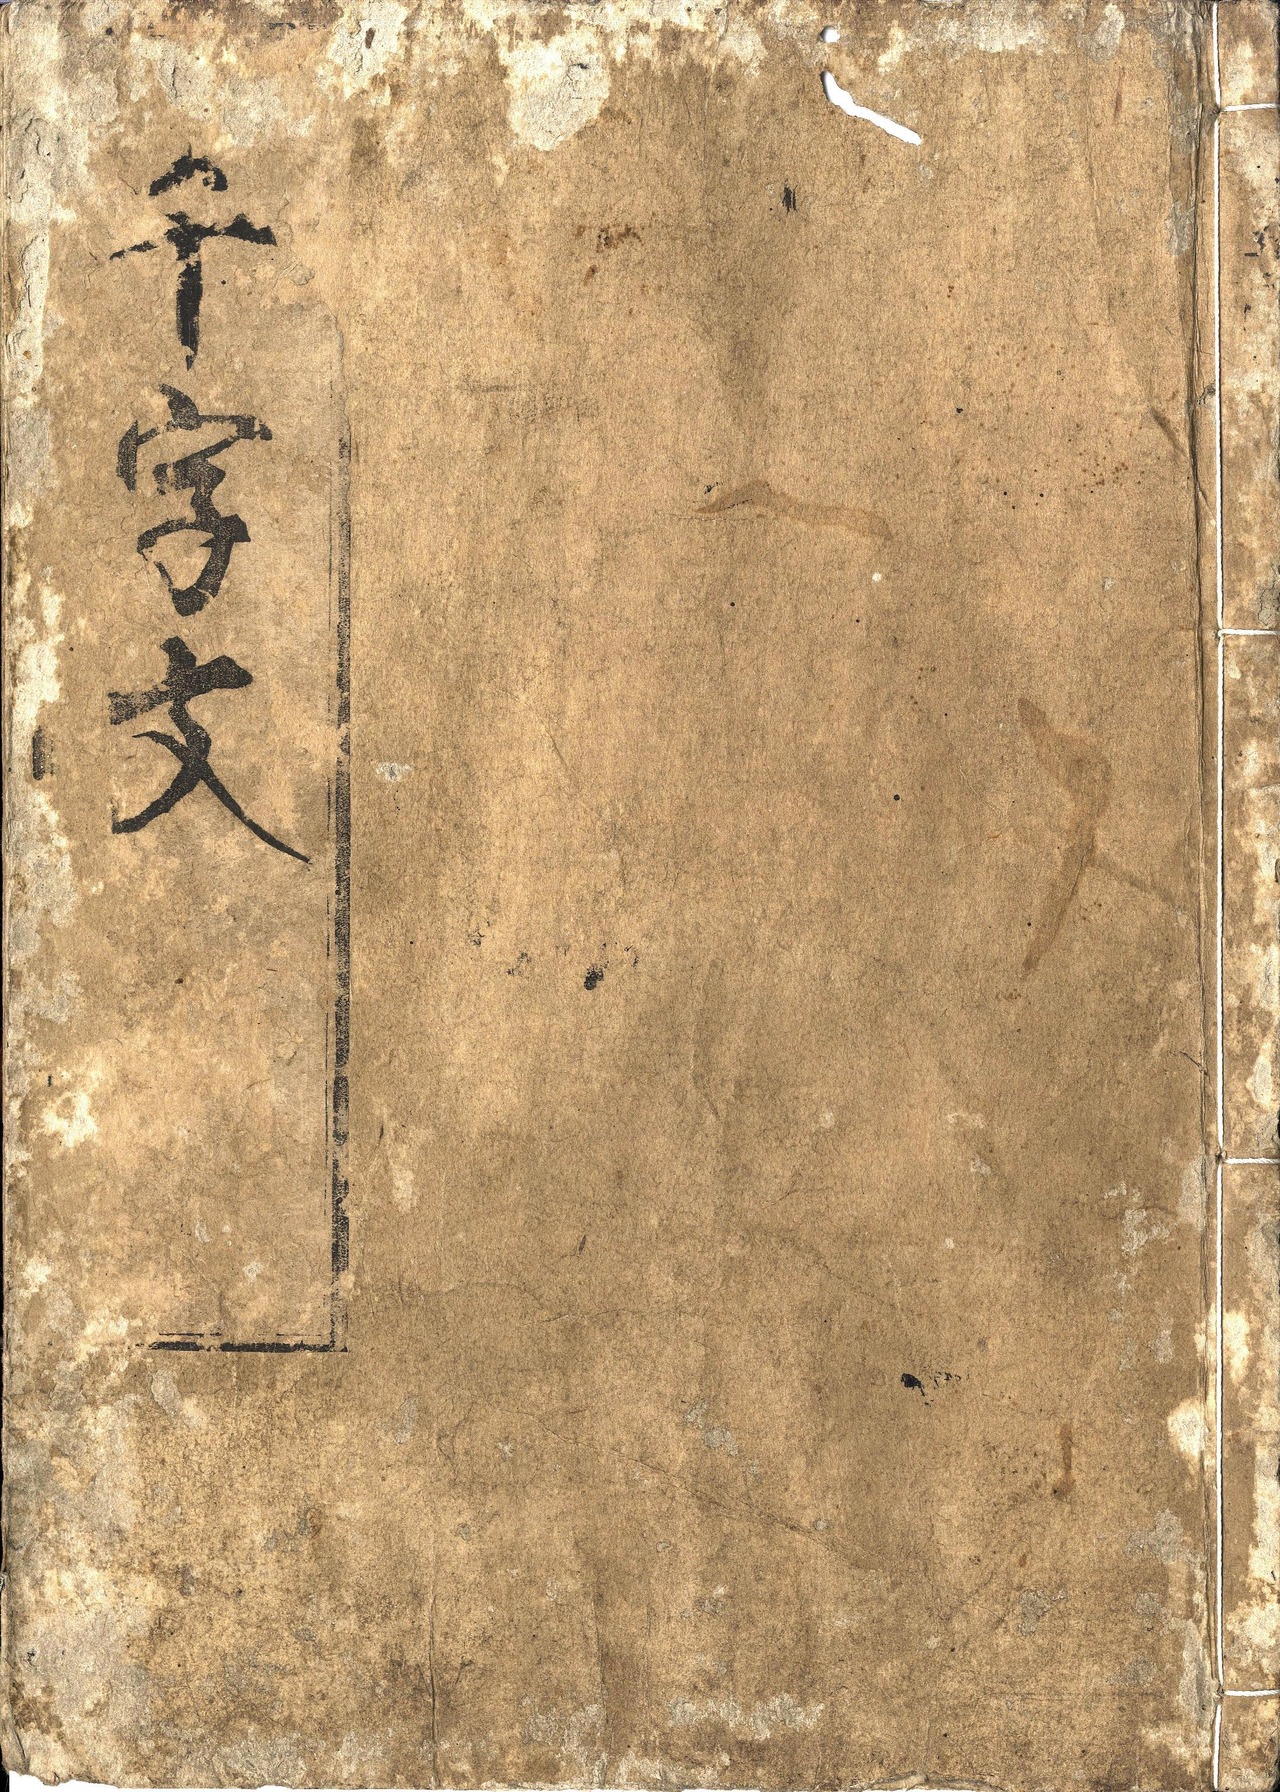 千字文